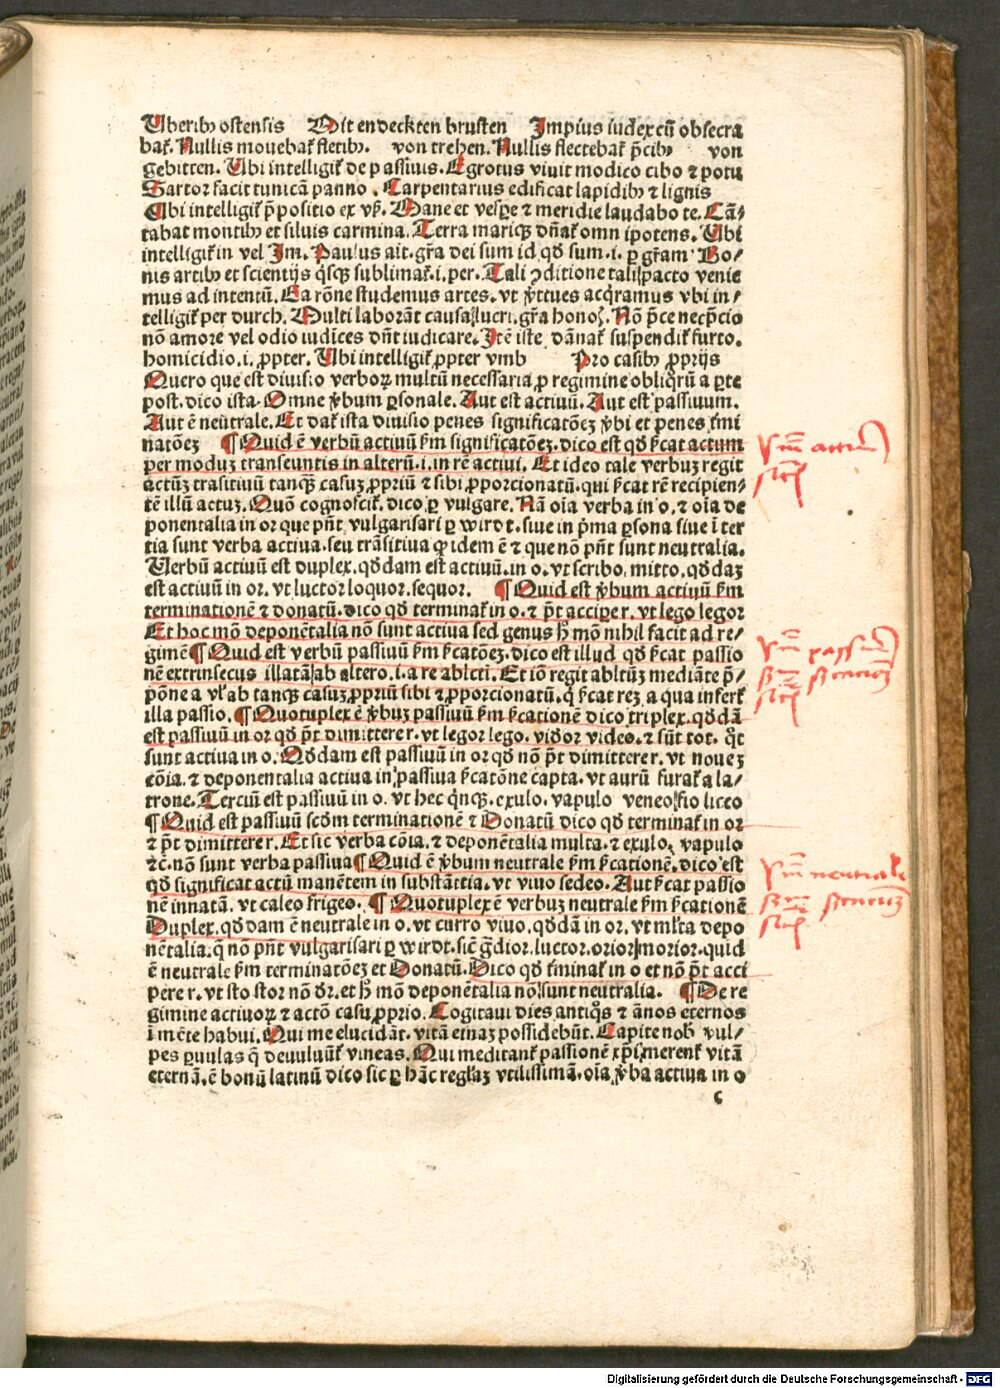 Uberibꝫ ostensis Mit endeckten brusten Impius iudex cū obsecra
bat̃. Nullis mouebat̃ fletibꝫ. von trehen. Nullis flectebat̃ p̄cibꝫ von
gebitten. Ubi intelligit̃ de passiuis. Egrotus viuit modico cibo ⁊ potu
Sartor facit tunicā panno. Carpentarius edificat lapidibꝫ ⁊ lignis
Ubi intelligit̃ p̄positio ex vꝑ. Mane et vesꝑe ⁊ meridie laudabo te. Cā⸗
tabat montibꝫ et siluis carmina. Terra mariqꝫ dñat̃ omnipotens. Ubi
intelligit̃ in vel Im. Paulus ait. gr̄a dei sum id qđ sum .i. ꝑ gr̄am. Bo/
nis artibꝫ et scientijs q̄sqꝫ sublimat̃ .i. per. Tali ꝯditione tali pacto venie
mus ad intentū. Ea rōne studemus artes. vt v̄tues acq̄ramus vbi in/
telligit̃ per durch. Multi laborāt causa lucri. gr̄a honoꝝ. Nō p̄ce nec p̄cio
nō amore vel odio iudices dñt iudicare. Itē iste dānat̃ suspendit̃ furto.
homicidio .i. ꝓpter. Ubi intelligit̃ ꝓpter vmb Pro casibꝫ ꝓprijs
Quero que est diuisio verboꝝ multū necessaria ꝓ regimine obliq̄rū a ꝑte
post. dico ista. Omne v̄bum ꝑsonale. Aut est actiuū. Aut est passiuum.
Aut ē neutrale. Et dat̃ ista diuisio penes significatōeꝫ v̄bi et penes t̄mi
natōeꝫ ¶ Quid ē verbū actiuū ẜm significatōeꝫ. dico est qđ ẜcat actum
per moduꝫ transeuntis in alterū .i. in rē actiui. Et ideo tale verbuꝫ regit
actūꝫ trāsitiuū tanqꝫ casuꝫ ꝓpriū ⁊ sibi ꝓporcionatū. qui ẜcat rē recipien⸗
tē illū actuꝫ. Quō cognoscit̃. dico ꝑ vulgare. Nā oīa verba in o. ⁊ oīa de
ponentalia in or que pn̄t vulgarisari ꝑ wirdt. siue in p̄ma ꝑsona siue ī ter
tia sunt verba actiua. seu trāsitiua qꝛ idem ē ⁊ que nō pn̄t sunt neutralia.
Uerbū actiuū est duplex. qđdam est actiuū. in o. vt scribo. mitto. qđdaꝫ
est actiuū in or. vt luctor loquor. sequor. ¶ Quid est v̄bum actiuū ẜm
terminationē ⁊ donatū. dico qđ terminat̃ in o. ⁊ p̄t acciper r. vt lego legor
Et hoc mō deponētalia nō sunt actiua sed genus h̄ mō nihil facit ad re/
gimē ¶ Quid est verbū passiuū ẜm ẜcatōeꝫ. dico est illud qđ ẜcat passio
nē extrinsecus illatā ab altero .i. a re ablcti. Et iō regit abltūꝫ mediāte p̄/
pōne a vl̄ ab tanqꝫ casuꝫ ꝓpriū sibi ⁊ ꝓporcionatū. q̄ ẜcat reꝫ a qua infert̃
illa passio. ¶ Quotuplex ē v̄buꝫ passiuū ẜm ẜcationē dico triplex. qđdā
est passiuū in or qđ p̄t dimittere r. vt legor lego. vidor video. ⁊ sūt tot. q̄t
sunt actiua in o. Qđdam est passiuū in or qđ nō p̄t dimittere r. vt noueꝫ
cōia. ⁊ deponentalia actiua in passiua ẜcatōne capta. vt aurū furat̃ a la/
trone. Terciū est passiuū in o. vt hec q̄nqꝫ. exulo. vapulo veneo fio liceo
¶ Quid est passiuū scđm terminationē ⁊ Donatū dico qđ terminat̃ in or
⁊ p̄t dimittere r. Et sic verba cōia. ⁊ deponētalia multa. ⁊ exulo. vapulo
⁊c̄. nō sunt verba passiua ¶ Quid ē v̄bum neutrale ẜm ẜcationē. dico est
qđ significat actū manētem in substāctia. vt viuo sedeo. Aut ẜcat passio
nē innatā. vt caleo frigeo. ¶ Quotuplex ē verbuꝫ neutrale ẜm ẜcationē
Duplex. qđdam ē neutrale in o. vt curro viuo. qđdā in or. vt ml̄ta depo
nētalia. q̄ nō pn̄t vulgarisari ꝑ wirdt. sic̄ ḡdior. luctor. orior morior. quid
ē neutrale ẜm terminatōeꝫ et Donatū. Dico qđ t̄minat̃ in o et nō p̄t acci
pere r. vt sto stor nō dr̄. et h̄ mō deponētalia nō sunt neutralia. ¶ De re
gimine actiuoꝝ ⁊ actō casu ꝓprio. Cogitaui dies antiq̄s ⁊ ānos eternos
ī mēte habui. Qui me elucidāt. vitā eternaꝫ possidebūt. Capite nob̄ vul/
pes ꝑuulas q̄ demoliunt̃ vineas. Qui meditant̃ passionē xp̄i merent̃ vitā
eternā. ē bonū latinū dico sic ꝑ hāc regl̄aꝫ vtilissimā. oīa v̄ba actiua in o
c
Vm̄ actiuū
Vm̄ passiuū
Vm̄ neutrale
Digitalisierung gefördert durch die Deutsche Forschungsgemeinschaft - DFG